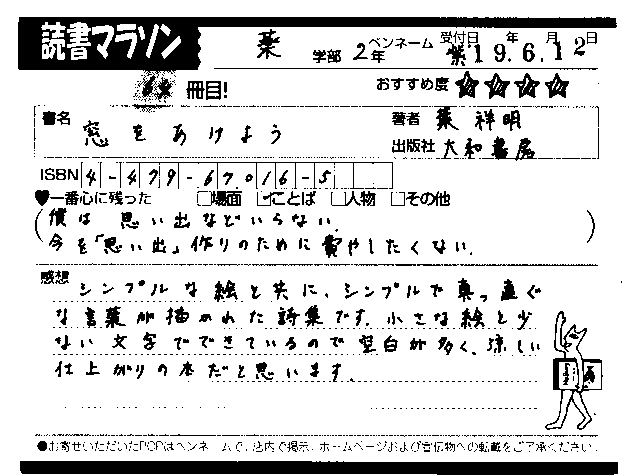 読書マラソン
薬 学部 2年 ペンネーム 紫 受付日 19年6月12日
64 冊目!
おすすめ度 ★★★★
書名 窓をあけよう
著者 葉 祥明
出版社 大和書房
ISBN 4-479-67016-5
♥一番心に残った □場面 ☑ことば □人物 □その他
(僕は 思い出などいらない.
今を「思い出」作りのために費やしたくない.)
感想 シンプルな絵と共に、シンプルで真っ直ぐ
な言葉が描かれた詩集です。小さな絵と少
ない文字でできているので空白が多く、涼しい
仕上がりの本だと思います.
●お寄せいただいたPOPはペンネームで、店内で掲示、ホームページおよび宣伝物への転載をご了承ください.